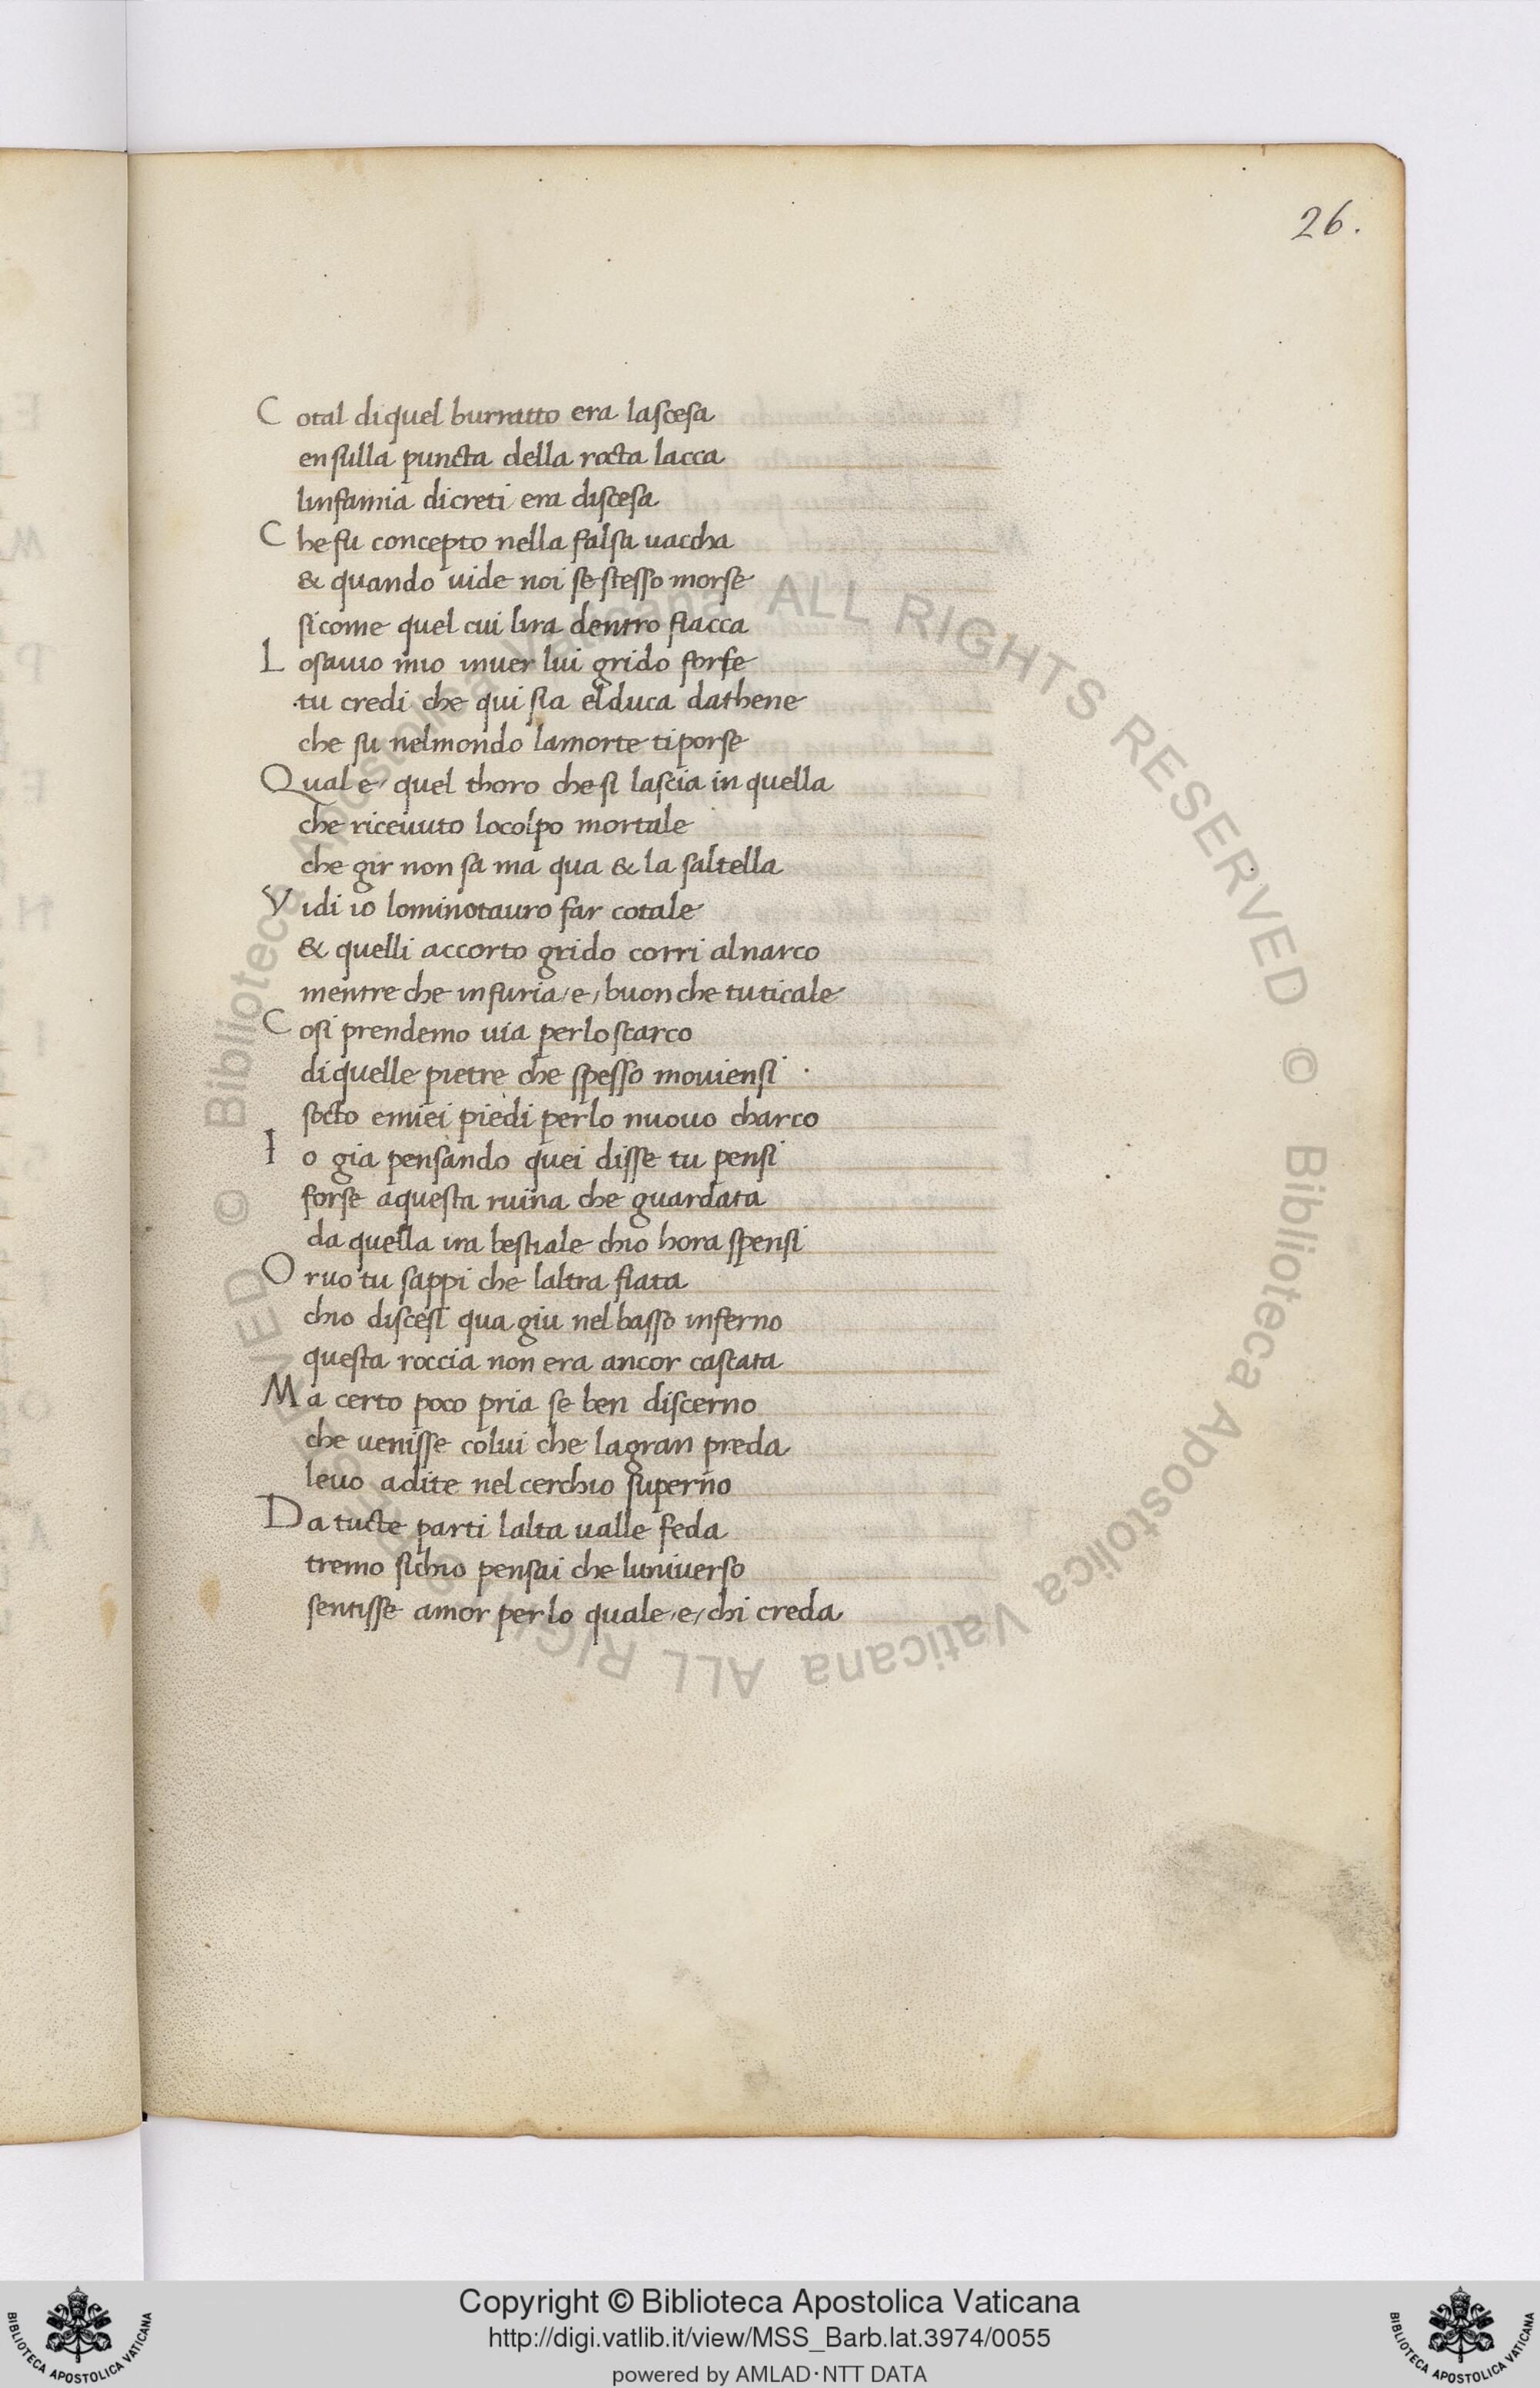 26.
C otal di quel burratto era la scesa
en sulla puncta della rocta lacca
linfamia di creti era discesa
C he fu concepto nella falsa uaccha
& quando uide noi se stesso morse
si come quel cui lira dentro fiacca
L o sauio mio inuer lui grido forse
tu credi che qui sia el duca dathene
che su nel mondo la morte ti porse
Q ual e quel thoro che si lascia in quella
che riceuuto lo colpo mortale
che gir non sa ma qua & la saltella
V idi io lo minotauro far cotale
& quelli accorto grido corri al uarco
mentre che infuria /e/ buon che tu ti cale
C osi prendemo uia per lo scarco
di quelle pietre che spesso mouiensi
socto e miei piedi per lo nuouo charco
I o gia pensando quei disse tu pensi
forse a questa ruina che guardata
da quella ira bestiale chio hora spensi
O r uo tu sappi che laltra fiata
chio discesi qua giu nel basso inferno
questa roccia non era ancor cascata
M a certo poco pria se ben discerno
che uenisse colui che la gran preda
leuo a dite nel cerchio superno
D a tucte parti lalta ualle feda
tremo si chio pensai che luniuerso
sentisse amor per lo quale /e/ chi creda
© Biblioteca Apostolica Vaticana ALL RIGHTS RESERVED © Biblioteca Apostolica Vaticana ALL RIGHTS RESERVED
Copyright © Biblioteca Apostolica Vaticana
http://digi.vatlib.it/view/MSS_Barb.lat.3974/0055
powered by AMLAD·NTT DATA
BIBLIOTECA APOSTOLICA VATICANA
BIBLIOTECA APOSTOLICA VATICANA